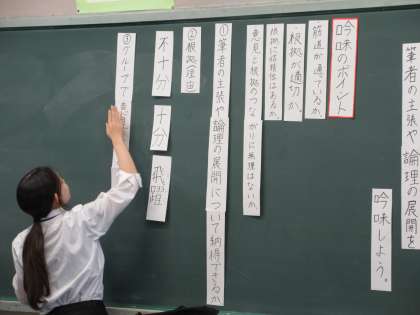 筆者の主張や論理の展開を
吟味しよう。
吟味のポイント
筋道が通っているか
根拠が適切か。
根拠に信頼性はあるか
意見と根拠のつながりに無理はないか
①筆者の主張や論理の展開について納得できるか
②根拠
不十分
十分
飛躍
③グループで意